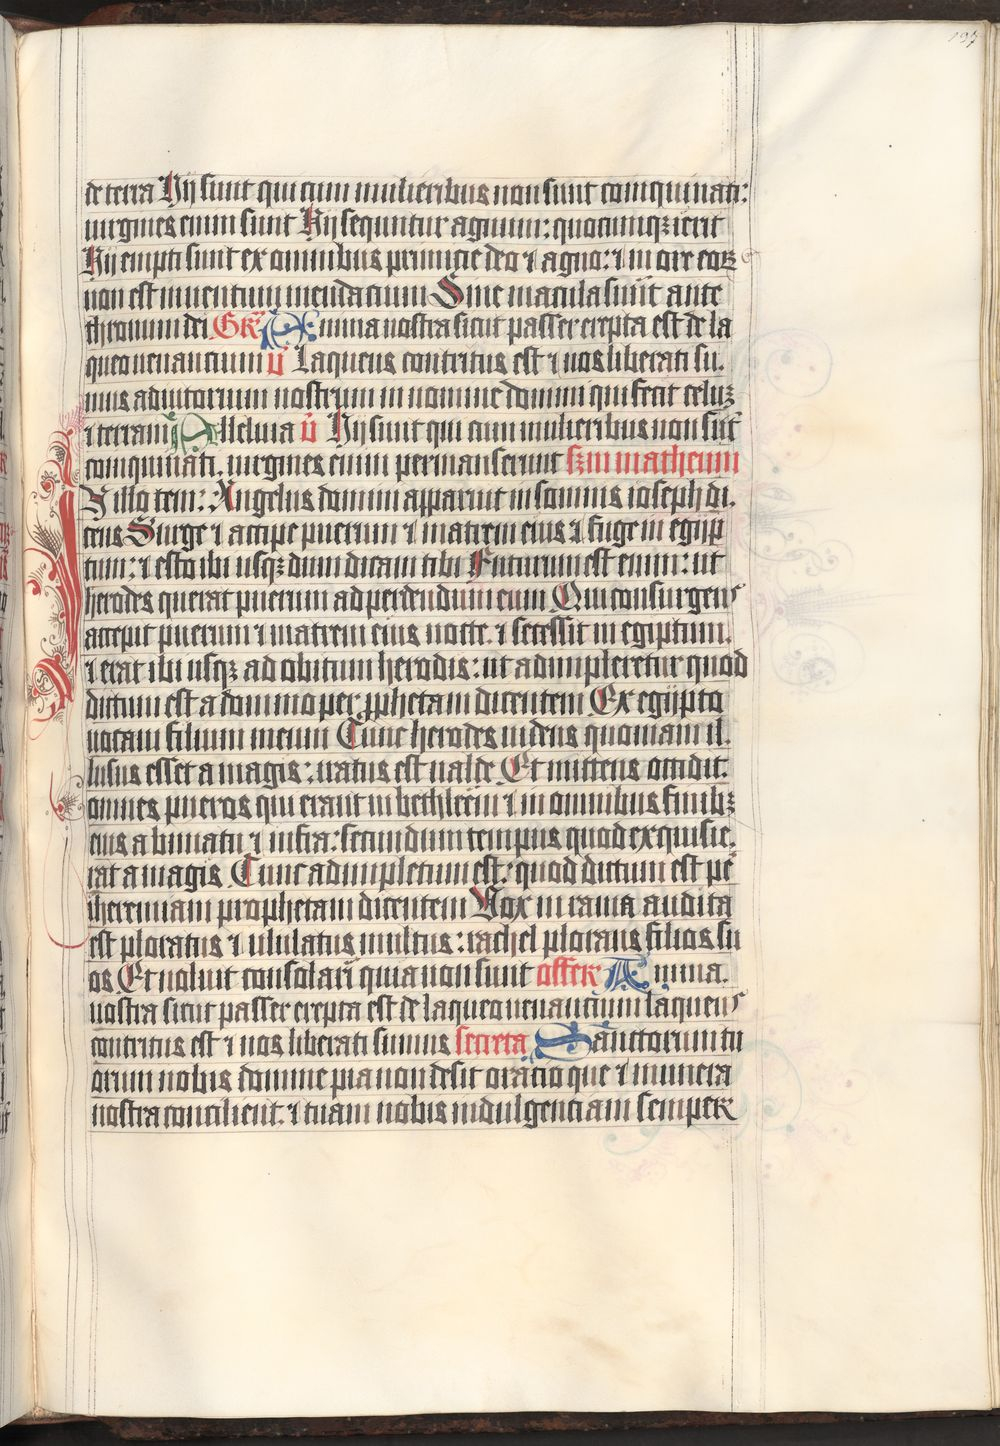 197
de terra Hij sunt qui cum mulieribus non sunt comquinati:
uirgines enim sunt Hij sequntur agnum: quocumqꝫ ierit
Hij empti sunt ex omnibus primicie deo ⁊ agno: ⁊ in ore eoꝝ
non est inuentum mendacium Sine macula sunt ante
thronum dei Gr̄ Anima nostra sicut passer erepta est de la
queo uenancium v̄ Laqueus contritus est ⁊ nos liberati su.
mus adiutorium nostrum in nomine domini qui fecit celuꝫ
⁊ terram Alleluia v̄ Hij sunt qui cum mulieribus non sūt
comquinati. uirgines enim permanserunt scd̄m matheum
In illo tem: Angelus domini apparuit in somnis ioseph di.
cens Surge ⁊ accipe puerum ⁊ matrem eius ⁊ fuge in egyp
tum: ⁊ esto ibi usqꝫ dum dicam tibi Futurum est enim: ut
herodes querat puerum ad perdendum eum Qui consurgens
accepit puerum ⁊ matrem eius nocte. ⁊ secessit in egiptum.
⁊ erat ibi usqꝫ ad obitum herodis: ut adimpleretur quod
dictum est a domino per ꝓphetam dicentem Ex egijpto
uocaui filium meum Tunc herodes uidens quoniam il.
lusus esset a magis: iratus est ualde Et mittens occidit.
omnes pueros qui erant in bethleem ⁊ in omnibus finibꝫ
eius a bimatu ⁊ infra: secundum tempus quod exquisie.
rat a magis Tunc adimpletum est: quod dictum est pe
iheremiam prophetam dicentem Uox in rama audita
est ploratus ⁊ ululatus multus: rachel plorans filios su
os Et noluit consolari quia non sunt offer̄ Anima.
nostra sicut passer erepta est de laqueo uenancium laqueus
contritus est ⁊ nos liberati sumus secreta Sanctorum tu
orum nobis domine pia non desit oracio que ⁊ munera
nostra conciliet. ⁊ tuam nobis indulgenciam semper